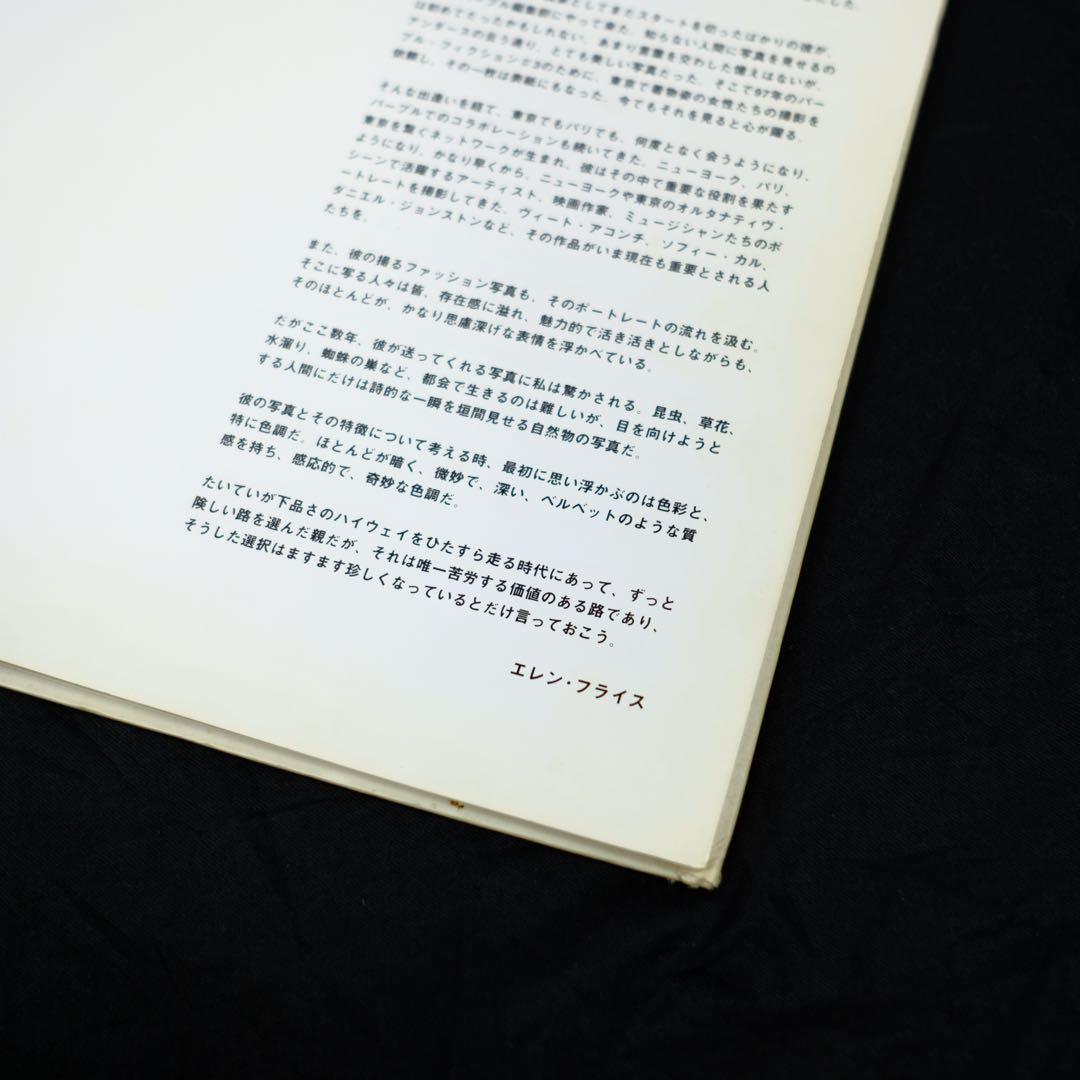 としてまだスタートを切ったばかりの彼が、
プル編集部にやって来た。知らない人間に写真を見せるの
は初めてだったかもしれない。あまり言葉を交わした憶えはないが、
アンダースの言う通り、とても美しい写真だった。そこで97年のパー
プル・フィクション#3のために、東京で着物姿の女性たちの撮影を
依頼し、その一枚は表紙にもなった。今でもそれを見ると心が躍る。
そんな出逢いを経て、東京でもパリでも、何度となく会うようになり、
パープルでのコラボレーションも続いてきた。ニューヨーク、パリ、
東京を繋ぐネットワークが生まれ、彼はその中で重要な役割を果たす
ようになり、かなり早くから、ニューヨークや東京のオルタナティヴ・
シーンで活躍するアーティスト、映画作家、ミュージシャンたちのポ
ートレートを撮影してきた。ヴィート・アコンチ、ソフィー・カル、
ダニエル・ジョンストンなど、その作品がいま現在も重要とされる人
たちを。
また、彼の撮るファッション写真も、そのポートレートの流れを汲む。
そこに写る人々は皆、存在感に溢れ、魅力的で活き活きとしながらも、
そのほとんどが、かなり思慮深げな表情を浮かべている。
だがここ数年、彼が送ってくれる写真に私は驚かされる。昆虫、草花、
水溜り、蜘蛛の巣など、都会で生きるのは難しいが、目を向けようと
する人間にだけは詩的な一瞬を垣間見せる自然物の写真だ。
彼の写真とその特徴について考える時、最初に思い浮かぶのは色彩と、
特に色調だ。ほとんどが暗く、微妙で、深い、ベルベットのような質
感を持ち、感応的で、奇妙な色調だ。
たいていが下品さのハイウェイをひたすら走る時代にあって、ずっと
険しい路を選んだ親だが、それは唯一苦労する価値のある路であり、
そうした選択はますます珍しくなっているとだけ言っておこう。
エレン・フライス